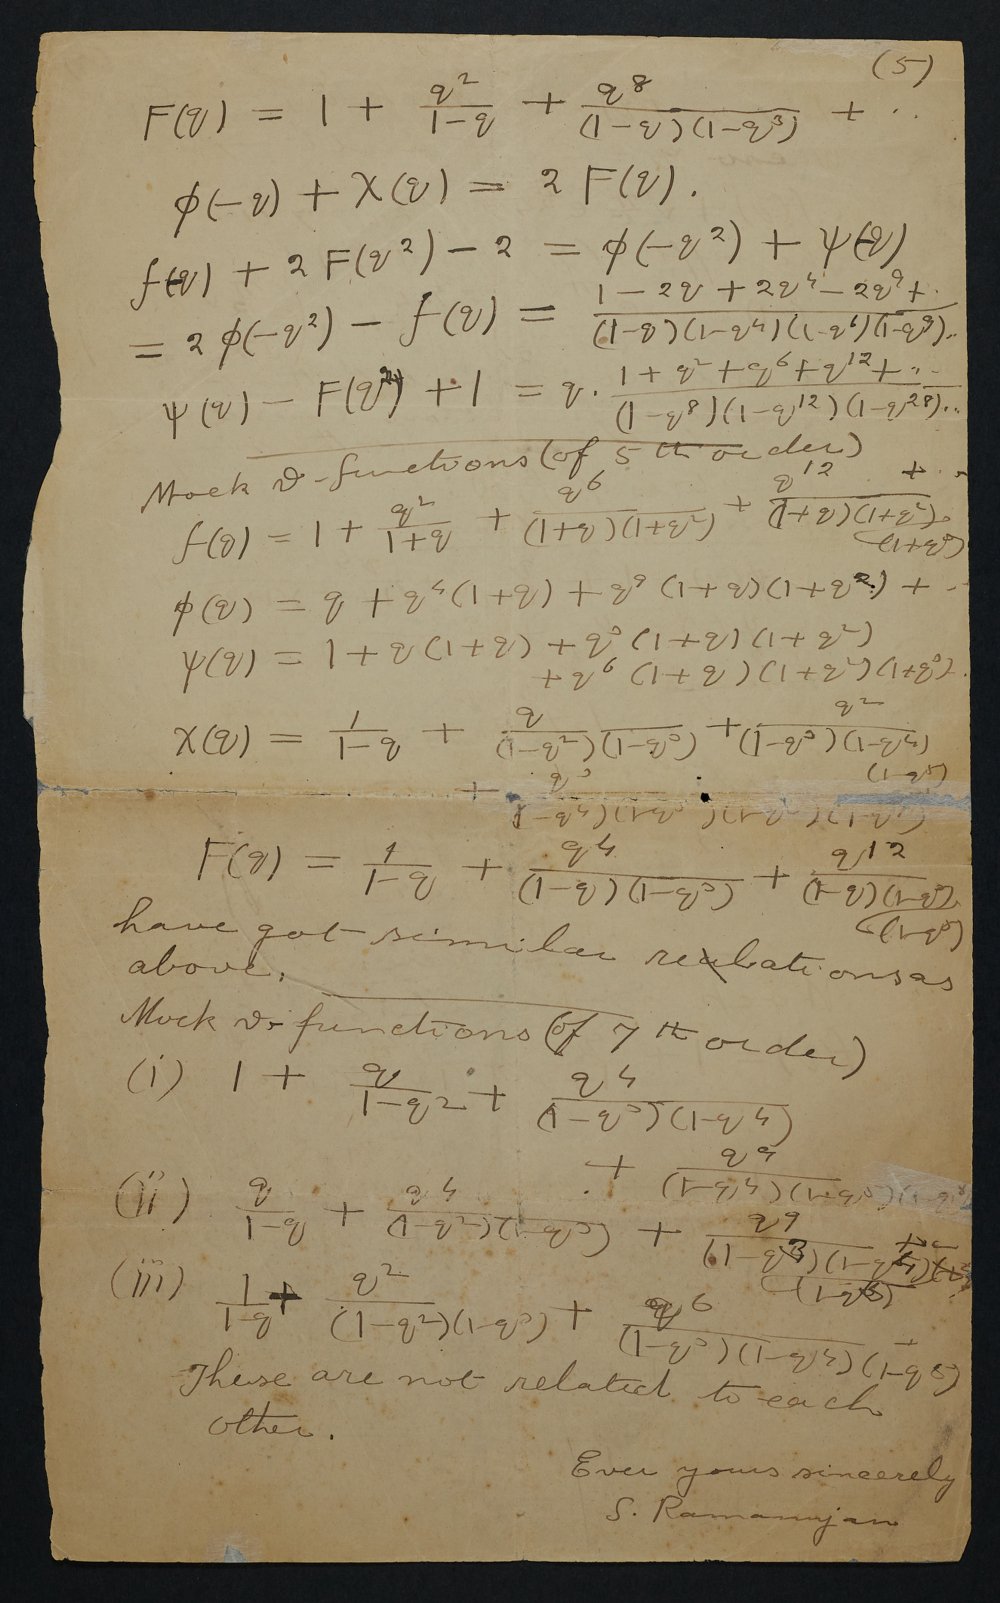 (5)
F(q) = 1 + q²/(1-q) + q⁸/((1-q)(1-q³)) + ..
ϕ(-q) + χ(q) = 2 F(q).
f(-q) + 2 F(q²) - 2 = ϕ(-q²) + ψ(-q)
= 2 ϕ(-q²) - f(q) = (1 - 2q + 2q⁴ - 2q⁹ + ..)/((1-q)(1-q⁴)(1-q⁶)(1-q⁹)..)
ψ(q) - F(q²) + 1 = q · (1 + q² + q⁶ + q¹² + ...)/((1-q⁸)(1-q¹²)(1-q²⁸)..)
Mock ϑ-functions (of 5th order)
f(q) = 1 + q²/(1+q) + q⁶/((1+q)(1+q²)) + q¹²/((1+q)(1+q²)(1+q³)) + ..
ϕ(q) = q + q⁴(1+q) + q⁹(1+q)(1+q²) + ..
ψ(q) = 1 + q(1+q) + q³(1+q)(1+q²)
+ q⁶(1+q)(1+q²)(1+q³) ..
χ(q) = 1/(1-q) + q/((1-q²)(1-q³)) + q²/((1-q³)(1-q⁴)(1-q⁵))
+ q³/((1-q⁴)(1-q⁵)(1-q⁶)(1-q⁷))
F(q) = 1/(1-q) + q⁴/((1-q)(1-q³)) + q¹²/((1-q)(1-q³)(1-q⁵))
have got similar relations as
above.
Mock ϑ-functions (of 7th order)
(i) 1 + q/(1-q²) + q⁴/((1-q³)(1-q⁴))
+ q⁹/((1-q⁴)(1-q⁵)(1-q⁶))
(ii) q/(1-q) + q⁴/((1-q²)(1-q³)) + q⁹/((1-q³)(1-q⁴)(1-q⁵)) + ..
(iii) 1/(1-q) + q²/((1-q²)(1-q³)) + q⁶/((1-q³)(1-q⁴)(1-q⁵)) +
These are not related to each
other.
Ever yours sincerely
S. Ramanujan